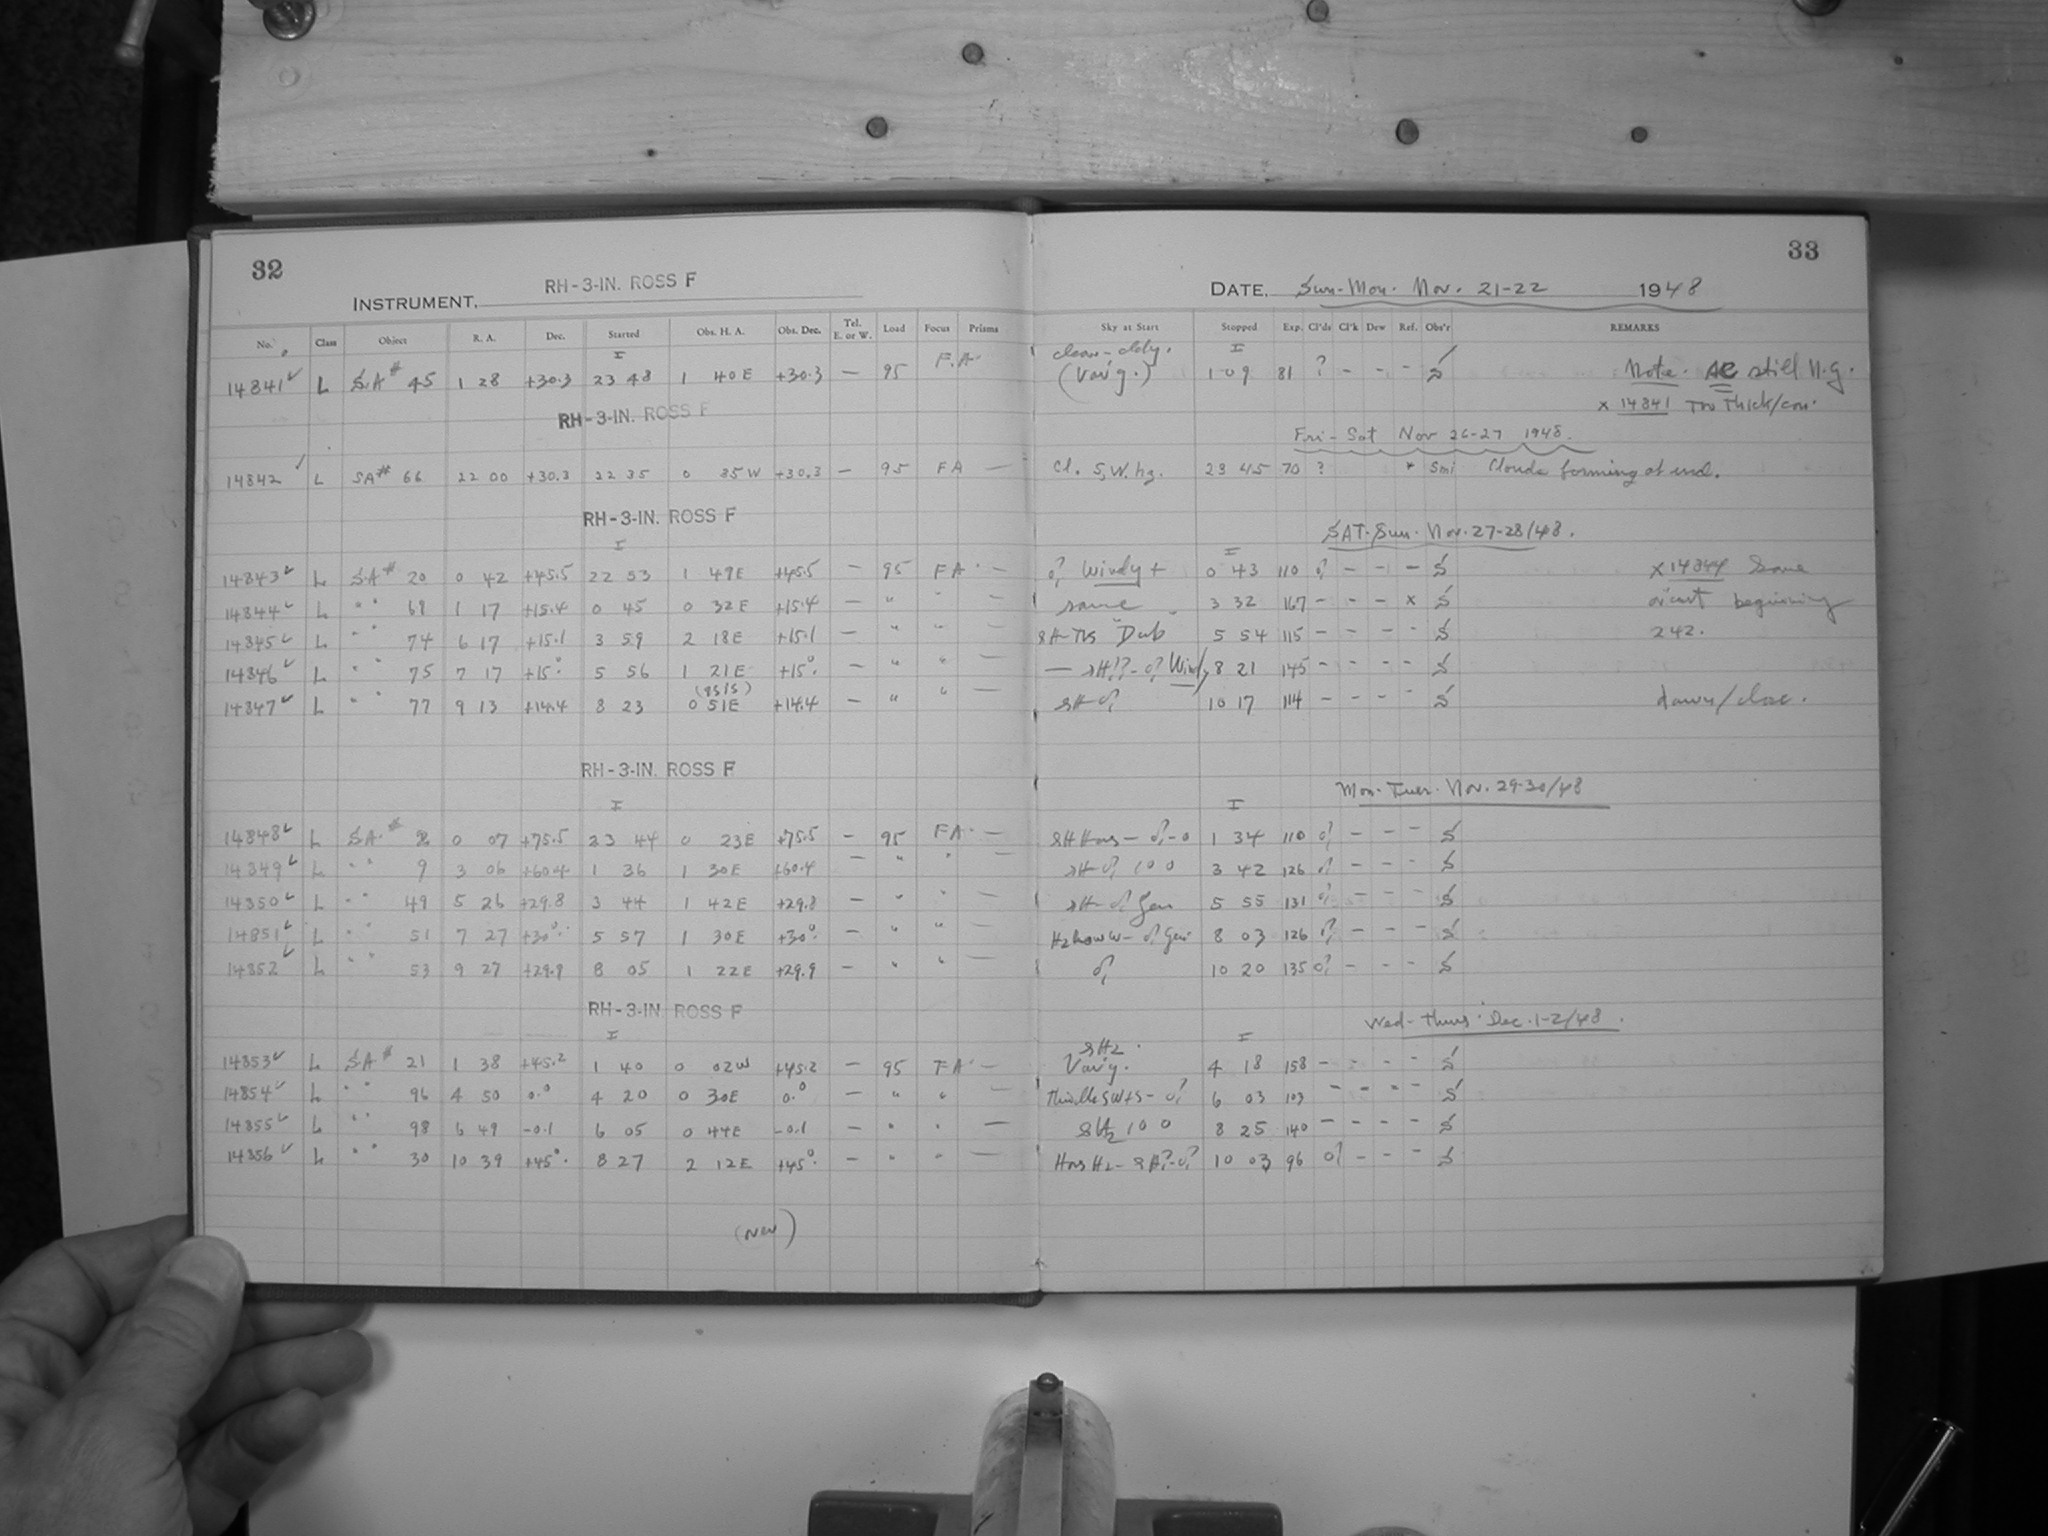 32
INSTRUMENT, RH-3-IN. ROSS F
No. Class Object R. A. Dec. Started Obs. H. A. Obs. Dec. Tel. E. or W. Load Focus Prisms
14841 L S.A# 45 1 28 +30.3 23 48 1 40E +30.3 — 95 F.A. —
RH-3-IN. ROSS F
14842 L SA# 66 22 00 +30.3 22 35 0 35W +30.3 — 95 FA —
RH-3-IN. ROSS F
14843 L S.A# 20 0 42 +45.5 22 53 1 49E +45.5 — 95 FA. —
14844 L " " 69 1 17 +15.4 0 45 0 32E +15.4 — " " —
14845 L " " 74 6 17 +15.1 3 59 2 18E +15.1 — " " —
14846 L " " 75 7 17 +15° 5 56 1 21E +15° — " " —
14847 L " " 77 9 13 +14.4 8 23 0 51E +14.4 — " " —
RH-3-IN. ROSS F
14848 L SA.# 2 0 07 +75.5 23 44 0 23E +75.5 — 95 FA. —
14849 L " " 9 3 06 +60.4 1 36 1 30E +60.4 — " " —
14850 L " " 49 5 26 +29.8 3 44 1 42E +29.8 — " " —
14851 L " " 51 7 27 +30° 5 57 1 30E +30° — " " —
14852 L " " 53 9 27 +29.9 8 05 1 22E +29.9 — " " —
RH-3-IN ROSS F
14853 L SA# 21 1 38 +45.2 1 40 0 02W +45.2 — 95 FA. —
14854 L " " 96 4 50 0.° 4 20 0 30E 0.° — " " —
14855 L " " 98 6 49 -0.1 6 05 0 44E -0.1 — " " —
14856 L " " 30 10 39 +45° 8 27 2 12E +45° — " " —
(New)
33
DATE, Sun-Mon. Nov. 21-22 1948
Sky at Start Stopped Exp. Cl'ds Cl'k Dew Ref. Obs'r REMARKS
(Var'g.) 1 09 81 ? - - - S Note. AC still N.G.
x 14841 Too Thick/con.
Fri-Sat Nov 26-27 1948.
Cl. S.W. hz. 23 45 70 ? * Smi Clouds forming at end.
SAT-Sun. Nov. 27-28/48.
Windy + 0 43 110 - - - S x 14844 Some
same 3 32 167 - - - x S beginning
5 54 115 - - - - S 242.
Windy 8 21 145 - - - - S
10 17 114 - - - - S dawn/close.
Mon-Tues. Nov. 29-30/48
1 34 110 - - - S
3 42 126 - - - S
5 55 131 - - - S
8 03 126 - - - S
10 20 135 - - - S
Wed-Thurs. Dec. 1-2/48.
Var'g. 4 18 158 - - - - S
6 03 103 - - - - S
8 25 140 - - - - S
10 03 96 - - - S